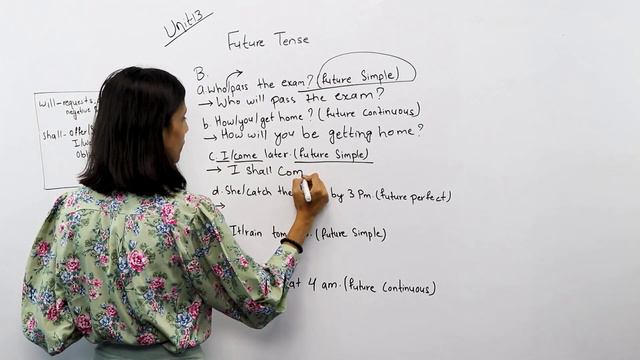 Unit 13
Future Tense
will-requests,
negative
shall-offer/S
I/w
Obl
B.
a. Who/pass the exam? (future Simple)
→ Who will pass the exam?
b. How/you/get home? (future Continuous)
→ How will you be getting home?
c. I/come later. (future Simple)
→ I shall Com
d. She/catch the by 3 Pm (future perfect)
→
It/rain tom (future Simple)
at 4 am. (future Continuous)